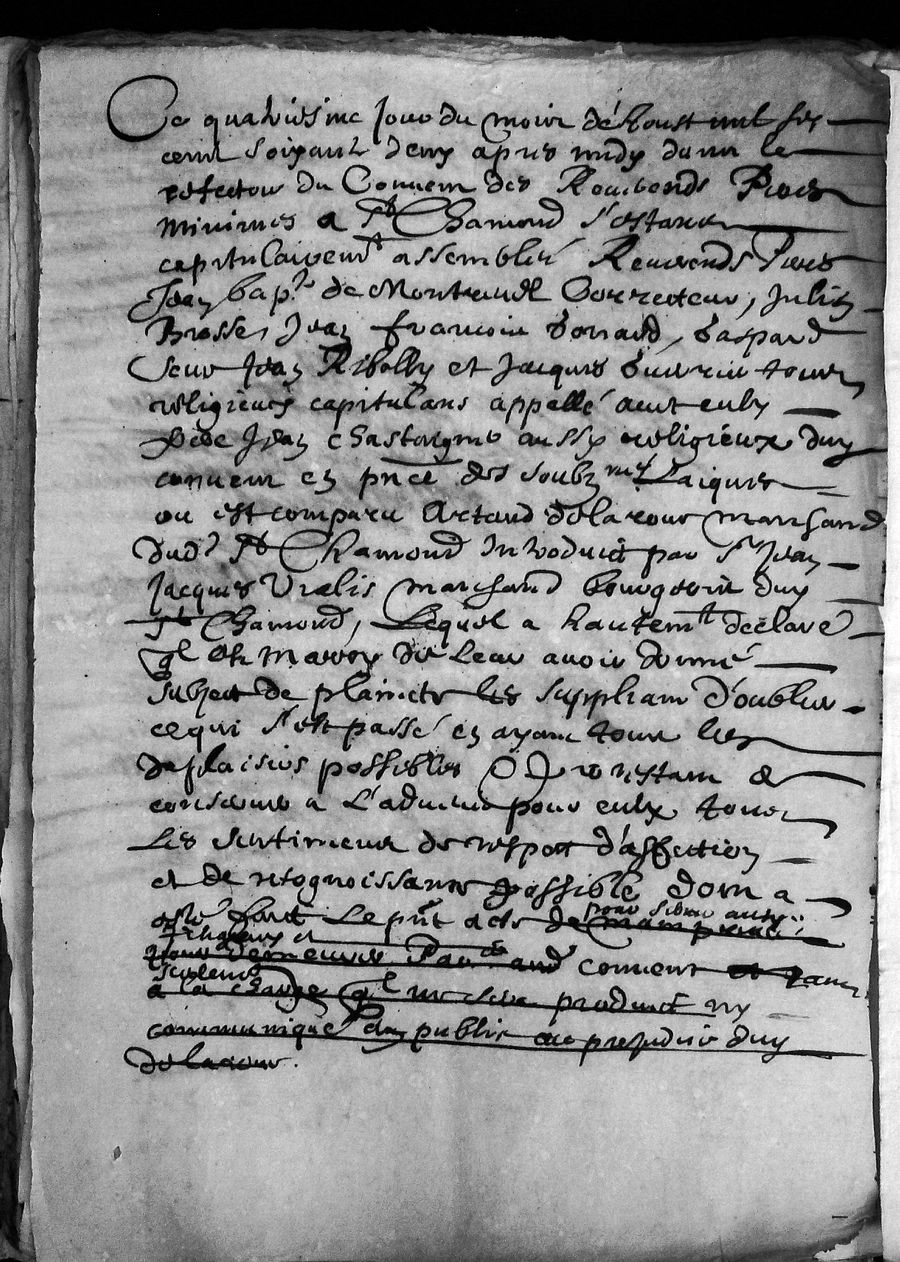 Ce quatriesme jour du mois d'Aoust mil six
cent soixante deux apres midy dans le
refectoir du Convent des Reverends Peres
Minimes a St Chamond s'estant
capitulairemt assemblés Reverends Peres
Jean bapte de Montraudt Correcteur, Julien
Brosse, Jean francois bonard, Gaspard
Jean Ribolly et Jacques Guerin tous
religieux capitulans appellé avec eulx
frere Jean chastaigne aussy religieux dud
convent en pnce des soubznes Laiques
ou est comparu Artaud delarour marchand
dudt St Chamond Introduict par Sr Jean
Jacques Vialis marchand bourgeois dud
St Chamond, Lequel a hautemt déclaré
ql est marry de leur avoir donné
subject de plaincte les suppliant d'oublier
ce qui s'est passé en ayant tous les
desplaisirs possibles & protestant de
conserver a l'advenir pour eulx tous
Les sentimens de respect d'affection
et de recognoissance possible dont a
esté faict Le pnt acte
pour servir auxd
religieux et convent
seulemt
a la charge ql ne sera produict ny
communiqué en public au prejudice dud
delarour.